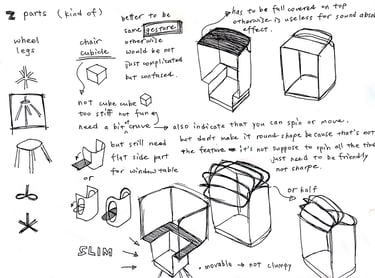 2 parts (kind of)
wheel legs
chair cubicle
better to be
same gesture
otherwise
would be not
just complicated
but confused.
has to be full covered on top
otherwise is useless for sound absorb
effect.
not cube cube
too stiff not fun
need a bit of curve → also indicate that you can spin or move.
but don't make it round shape because that's not
the feature → it's not suppose to spin all the time
just need to be friendly
not sharpe.
but still need
flat side part
for window table
or
or half
SLIM
• movable → not clumpy